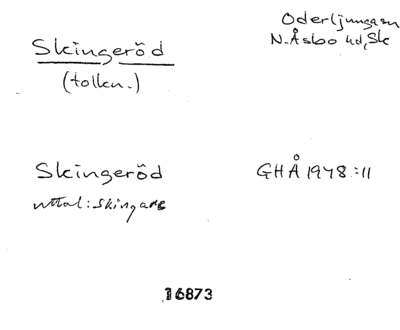 Skingeröd
(tolkn.)
Oderljungasn
N. Åsbo hd, Sk
Skingeröd
uttal: skingare
GHÅ 1948:11
16873